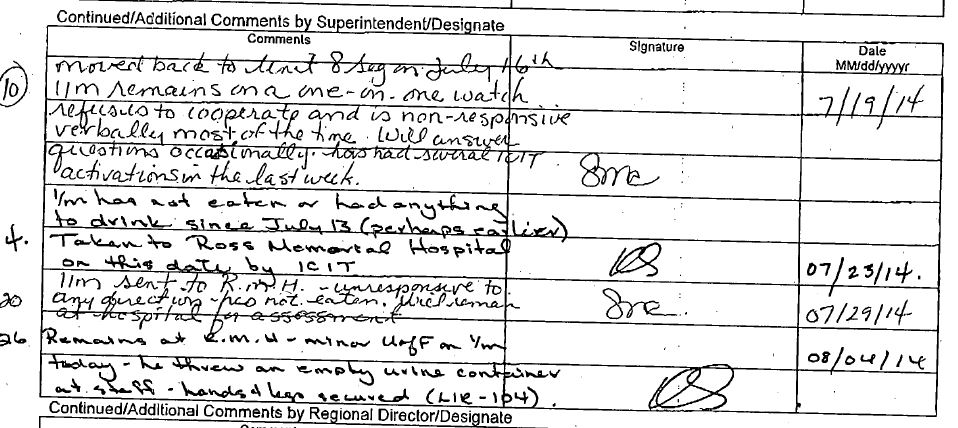 Continued/Additional Comments by Superintendent/Designate
Comments Signature Date
MM/dd/yyyyr
moved back to Unit 8 Seg on July 16th
10 I/m remains on a one-on-one watch 7/19/14
refuses to cooperate and is non-responsive
verbally most of the time. Will answer
questions occasionally. has had several ICIT
activations in the last week.
I/m has not eaten or had anything
to drink since July 13 (perhaps earlier)
4. Taken to Ross Memorial Hospital
on this date by ICIT 07/23/14.
I/m sent to R.M.H. - unresponsive to
20 any direction - has not eaten. Will remain 07/29/14
at hospital for assessment
26 Remains at R.M.H - minor UofF on I/m 08/04/14
today - he threw an empty urine container
at staff - hands & legs secured (LIR-104).
Continued/Additional Comments by Regional Director/Designate